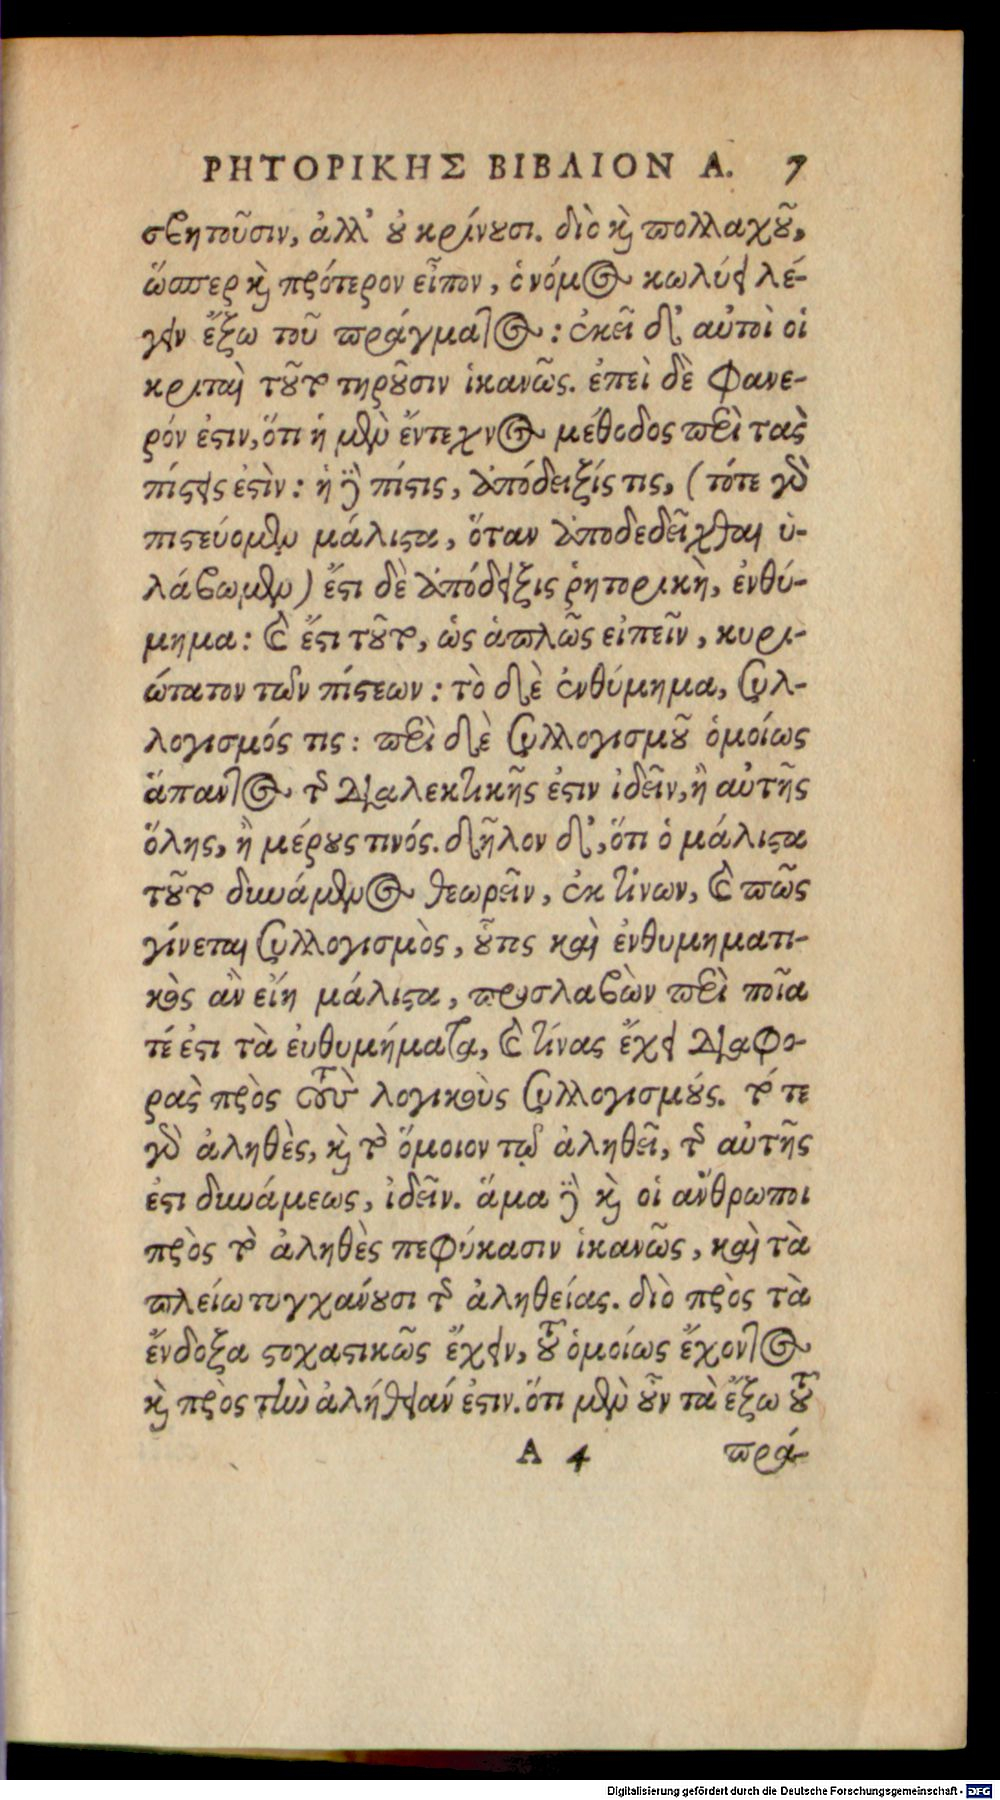 ΡΗΤΟΡΙΚΗΣ ΒΙΒΛΙΟΝ Α. 7
σβητοῦσιν, ἀλλ' οὐ κρίνουσι. διὸ καὶ πολλαχοῦ,
ὥσπερ καὶ πρότερον εἶπον, ὁ νόμος κωλύει λέ-
γειν ἔξω τοῦ πράγματος: ἐκεῖ δ' αὐτοὶ οἱ
κριταὶ τοῦτο τηροῦσιν ἱκανῶς. ἐπεὶ δὲ φανε-
ρόν ἐστιν, ὅτι ἡ μὲν ἔντεχνος μέθοδος περὶ τὰς
πίστεις ἐστὶν: ἡ δὲ πίστις, ἀπόδειξίς τις, (τότε γὰρ
πιστεύομεν μάλιστα, ὅταν ἀποδεδεῖχθαι ὑ-
λάβωμεν) ἔστι δὲ ἀπόδειξις ῥητορικὴ, ἐνθύ-
μημα: καὶ ἔστι τοῦτο, ὡς ἁπλῶς εἰπεῖν, κυρι-
ώτατον τῶν πίστεων: τὸ δὲ ἐνθύμημα, συλ-
λογισμός τις: περὶ δὲ συλλογισμοῦ ὁμοίως
ἅπαντος τῆς διαλεκτικῆς ἐστιν ἰδεῖν, ἢ αὐτῆς
ὅλης, ἢ μέρους τινός. δῆλον δ', ὅτι ὁ μάλιστα
τοῦτο δυνάμενος θεωρεῖν, ἐκ τίνων, καὶ πῶς
γίνεται συλλογισμὸς, οὗτος καὶ ἐνθυμηματι-
κὸς ἂν εἴη μάλιστα, προσλαβὼν περὶ ποῖα
τέ ἐστι τὰ ἐυθυμήματα, καὶ τίνας ἔχει διαφο-
ρὰς πρὸς τοὺς λογικοὺς συλλογισμούς. τό τε
γὰρ ἀληθὲς, καὶ τὸ ὅμοιον τῷ ἀληθεῖ, τῆς αὐτῆς
ἐστι δυνάμεως, ἰδεῖν. ἅμα δὲ καὶ οἱ ἄνθρωποι
πρὸς τὸ ἀληθὲς πεφύκασιν ἱκανῶς, καὶ τὰ
πλείω τυγχάνουσι τῆς ἀληθείας. διὸ πρὸς τὰ
ἔνδοξα στοχαστικῶς ἔχειν, τοῦ ὁμοίως ἔχοντος
καὶ πρὸς τὴν ἀλήθειάν ἐστιν. ὅτι μὲν οὖν τὰ ἔξω τοῦ
Α 4 πρά-
Digitalisierung gefördert durch die Deutsche Forschungsgemeinschaft - DFG